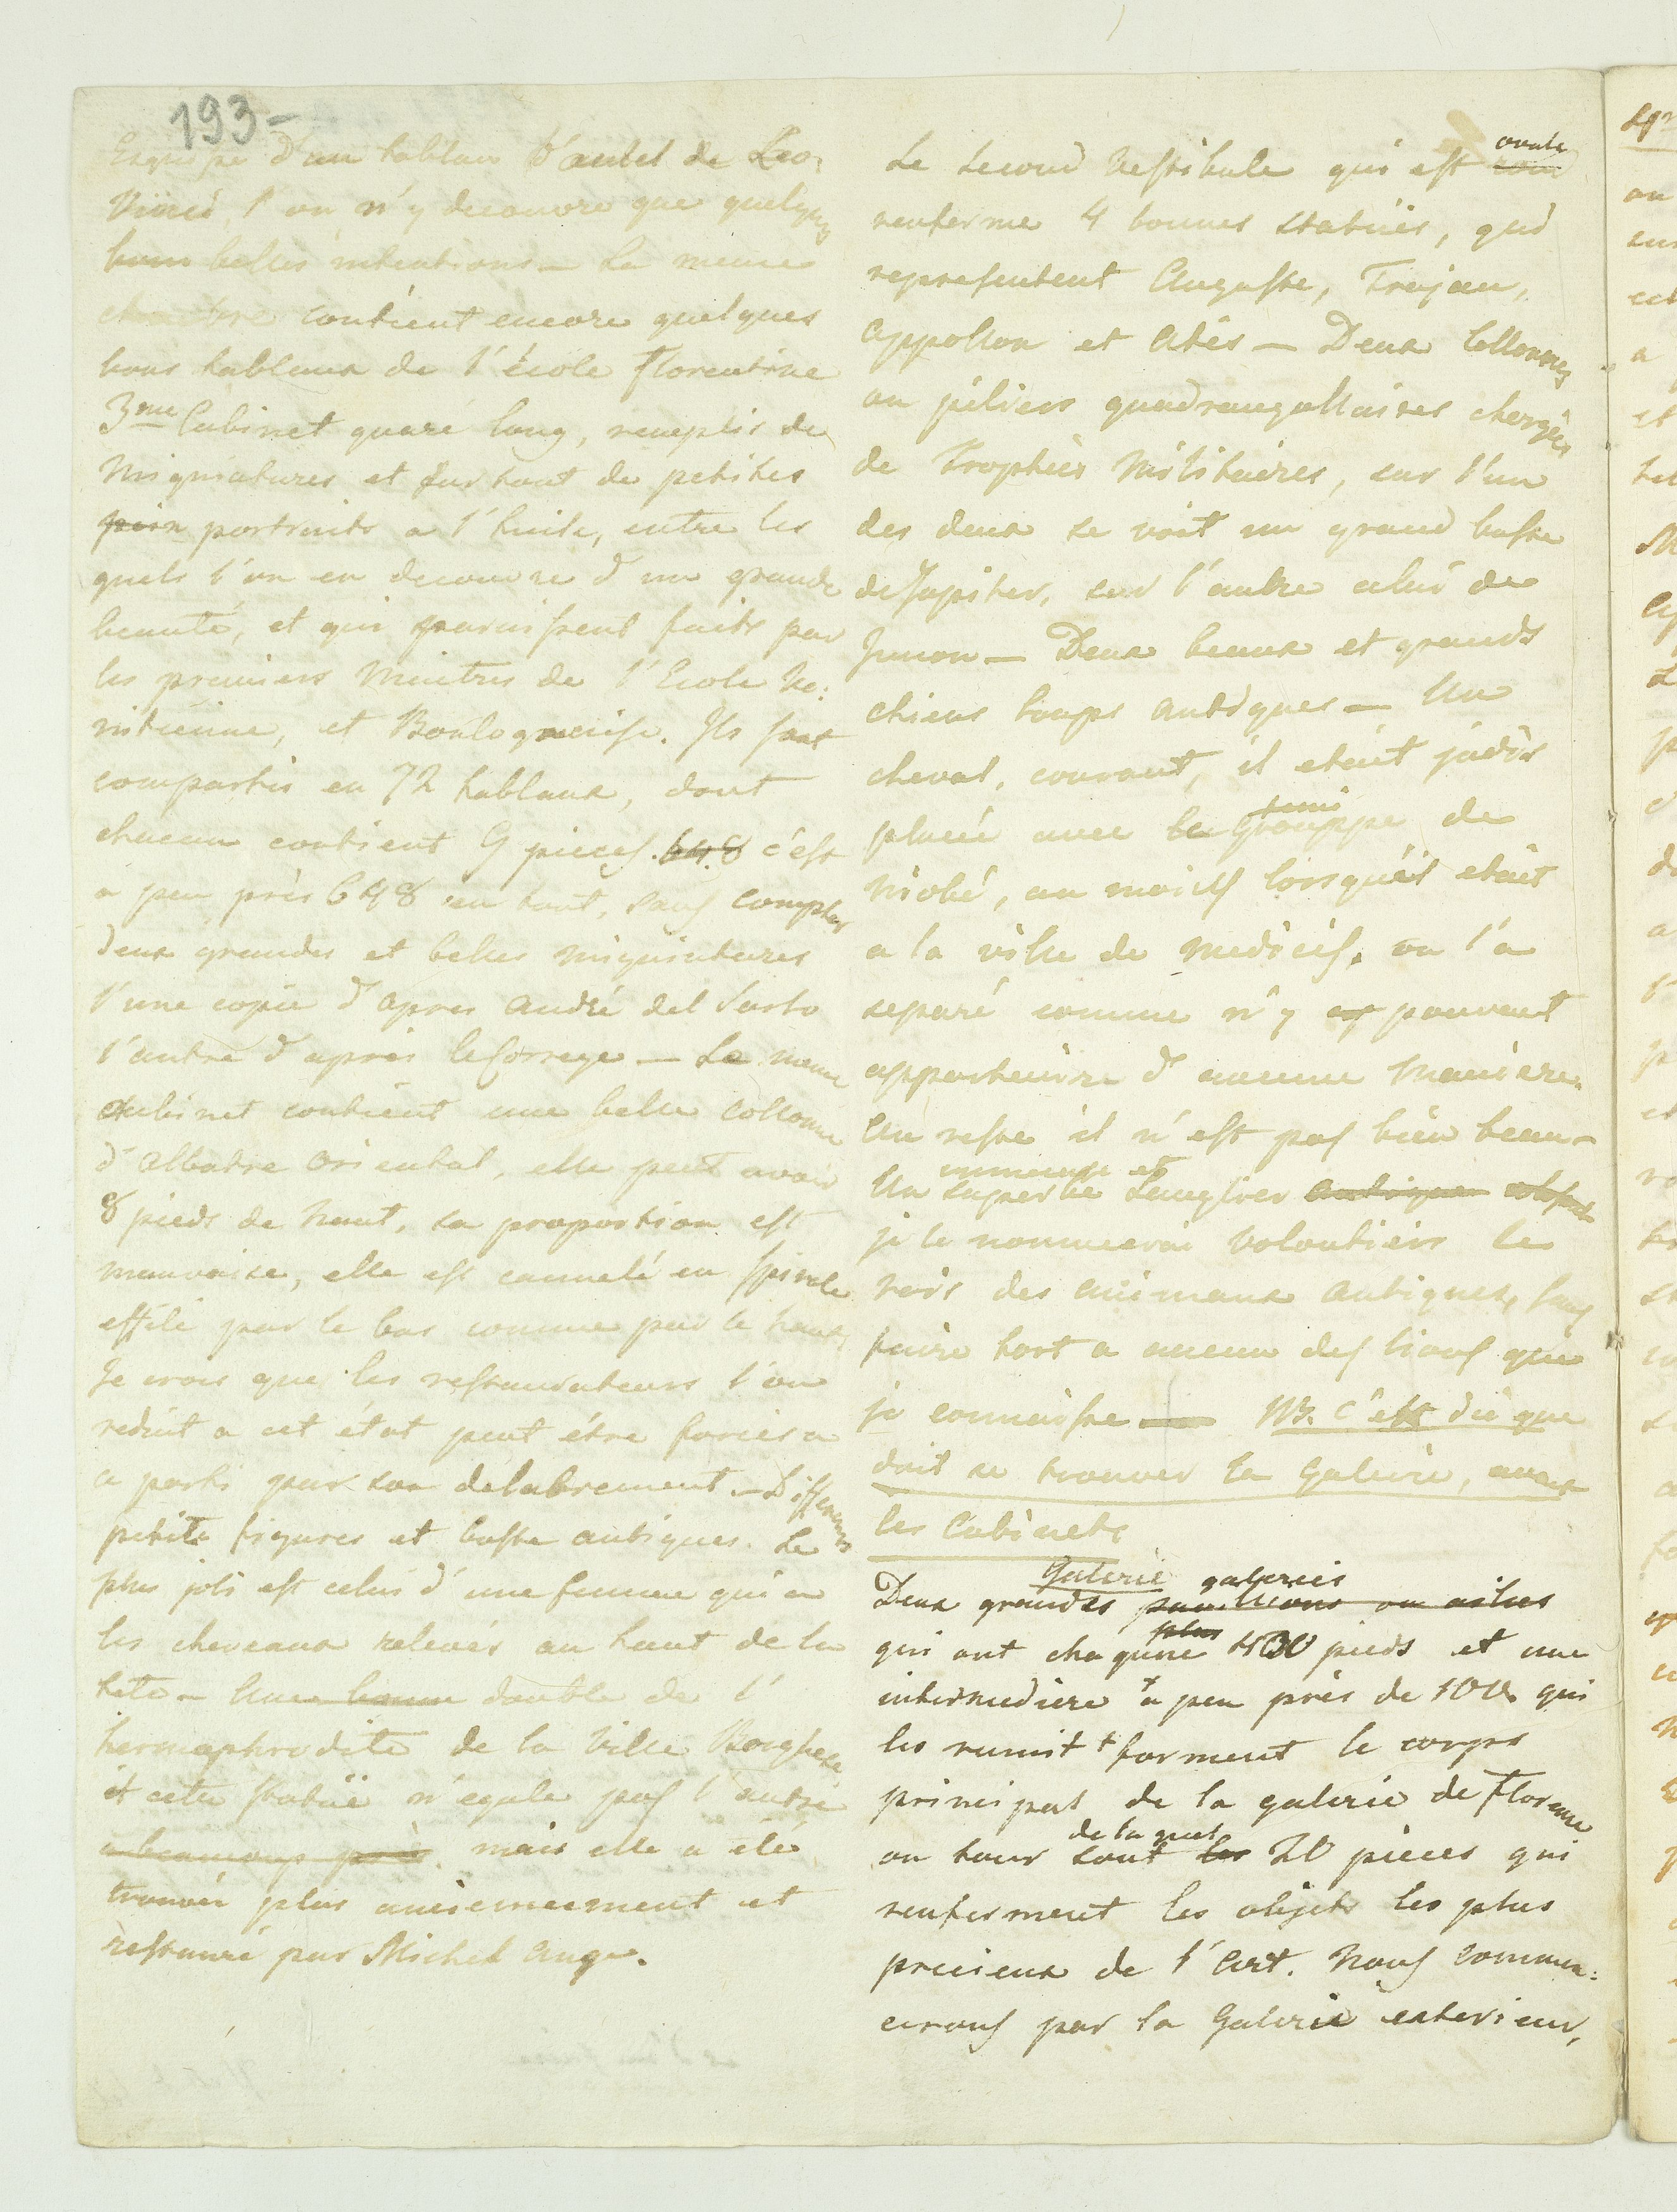 193-
Esquise d'un tablau d'autel de Leo:
Vinci, l'on n'y decouvre que quelques
bonn belles intentions — La meme
chambre contient encore quelques
bons tableaux de l'école florentine
3me Cabinet quaré long, remplis de
Migniatures et surtout de petites
pein portraits a l'huile, entre les
quels l'on en decouvre d'un grande
beauté, et qui paroissent faits par
les premiers Maitres de l'Ecole Ve:
nitienne, et Boulognaise. Ils sont
compartis en 72 tablaux, dont
chacun contient 9 pieces. 648 c'est
a peu près 648 en tout, sans compter
deux grandes et belles migniatures
l'une copie d'apres André del Sarto
l'autre d'après le Correge — Le meme
Cabinet contient une belle collonne
d'Albatre oriental, elle peut avoir
8 pieds de haut, sa proportion est
mauvaise, elle est cannelé en spirale
effilé par le bas comme par le haut,
Je crois que les restaurateurs l'on
reduit a cet état peut étre forcés a
a parti par son delabrement. — Differentes
petite figures et buste antiques. Le
plus joli est celui d'une femme qui a
les cheveaux relevés au haut de la
tete — Une bonne double de l'
hermaphrodite de la Ville Borghese
et cette statüe n'egale pas l'autre
a beaucoup près. mais elle a été
trouvée plus anciennement et
restauré par Michel Ange.
Le second Vestibule qui est rond
ovale
renferme 4 bonnes statües, qui
representent Auguste, Trajan,
Appollon et Atis — Deux Collonnes
ou piliers quadrangullaires chargés
de Trophées Militaires, sur l'un
des deux se voit un grand buste
de Jupiter, sur l'autre celui de
Junon — Deux beaux et grands
chiens loups antiques — Un
cheval, courant, il etait jadis
placé avec le Grouppe de
Niobé, au moins lorsqu'il etait
a la ville de Medicis, on l'a
separé comme n'y pouvant
appartenire d'aucune Maniere.
Au reste il n'est pas bien beau —
immense et
Un superbe Sanglier antique
je le nommerai volontiers le
rois des animaux antiques, sans
faire tort a aucun des lions que
je connaisse — NB. c'est ici que
doit se trouver la Galerie, avant
les Cabinets
Galerie galeries
Deux grandes pavillions ou ailes
plus
qui ont chaqune 400 pieds et une
intermediere a peu près de 100. qui
les reunit forment le corps
principal de la galerie de florence
de la quel
au tour sont les 20 pièces qui
renferment les objets les plus
precieux de l'Art. Nous commen:
cerons par la Galerie exterieur,